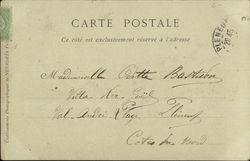 CARTE POSTALE
Ce côté est exclusivement réservé à l'adresse
PLENEUF
Mademoiselle Bastion
Villa Ker
Val-André Plage Pléneuf
Côtes du Nord